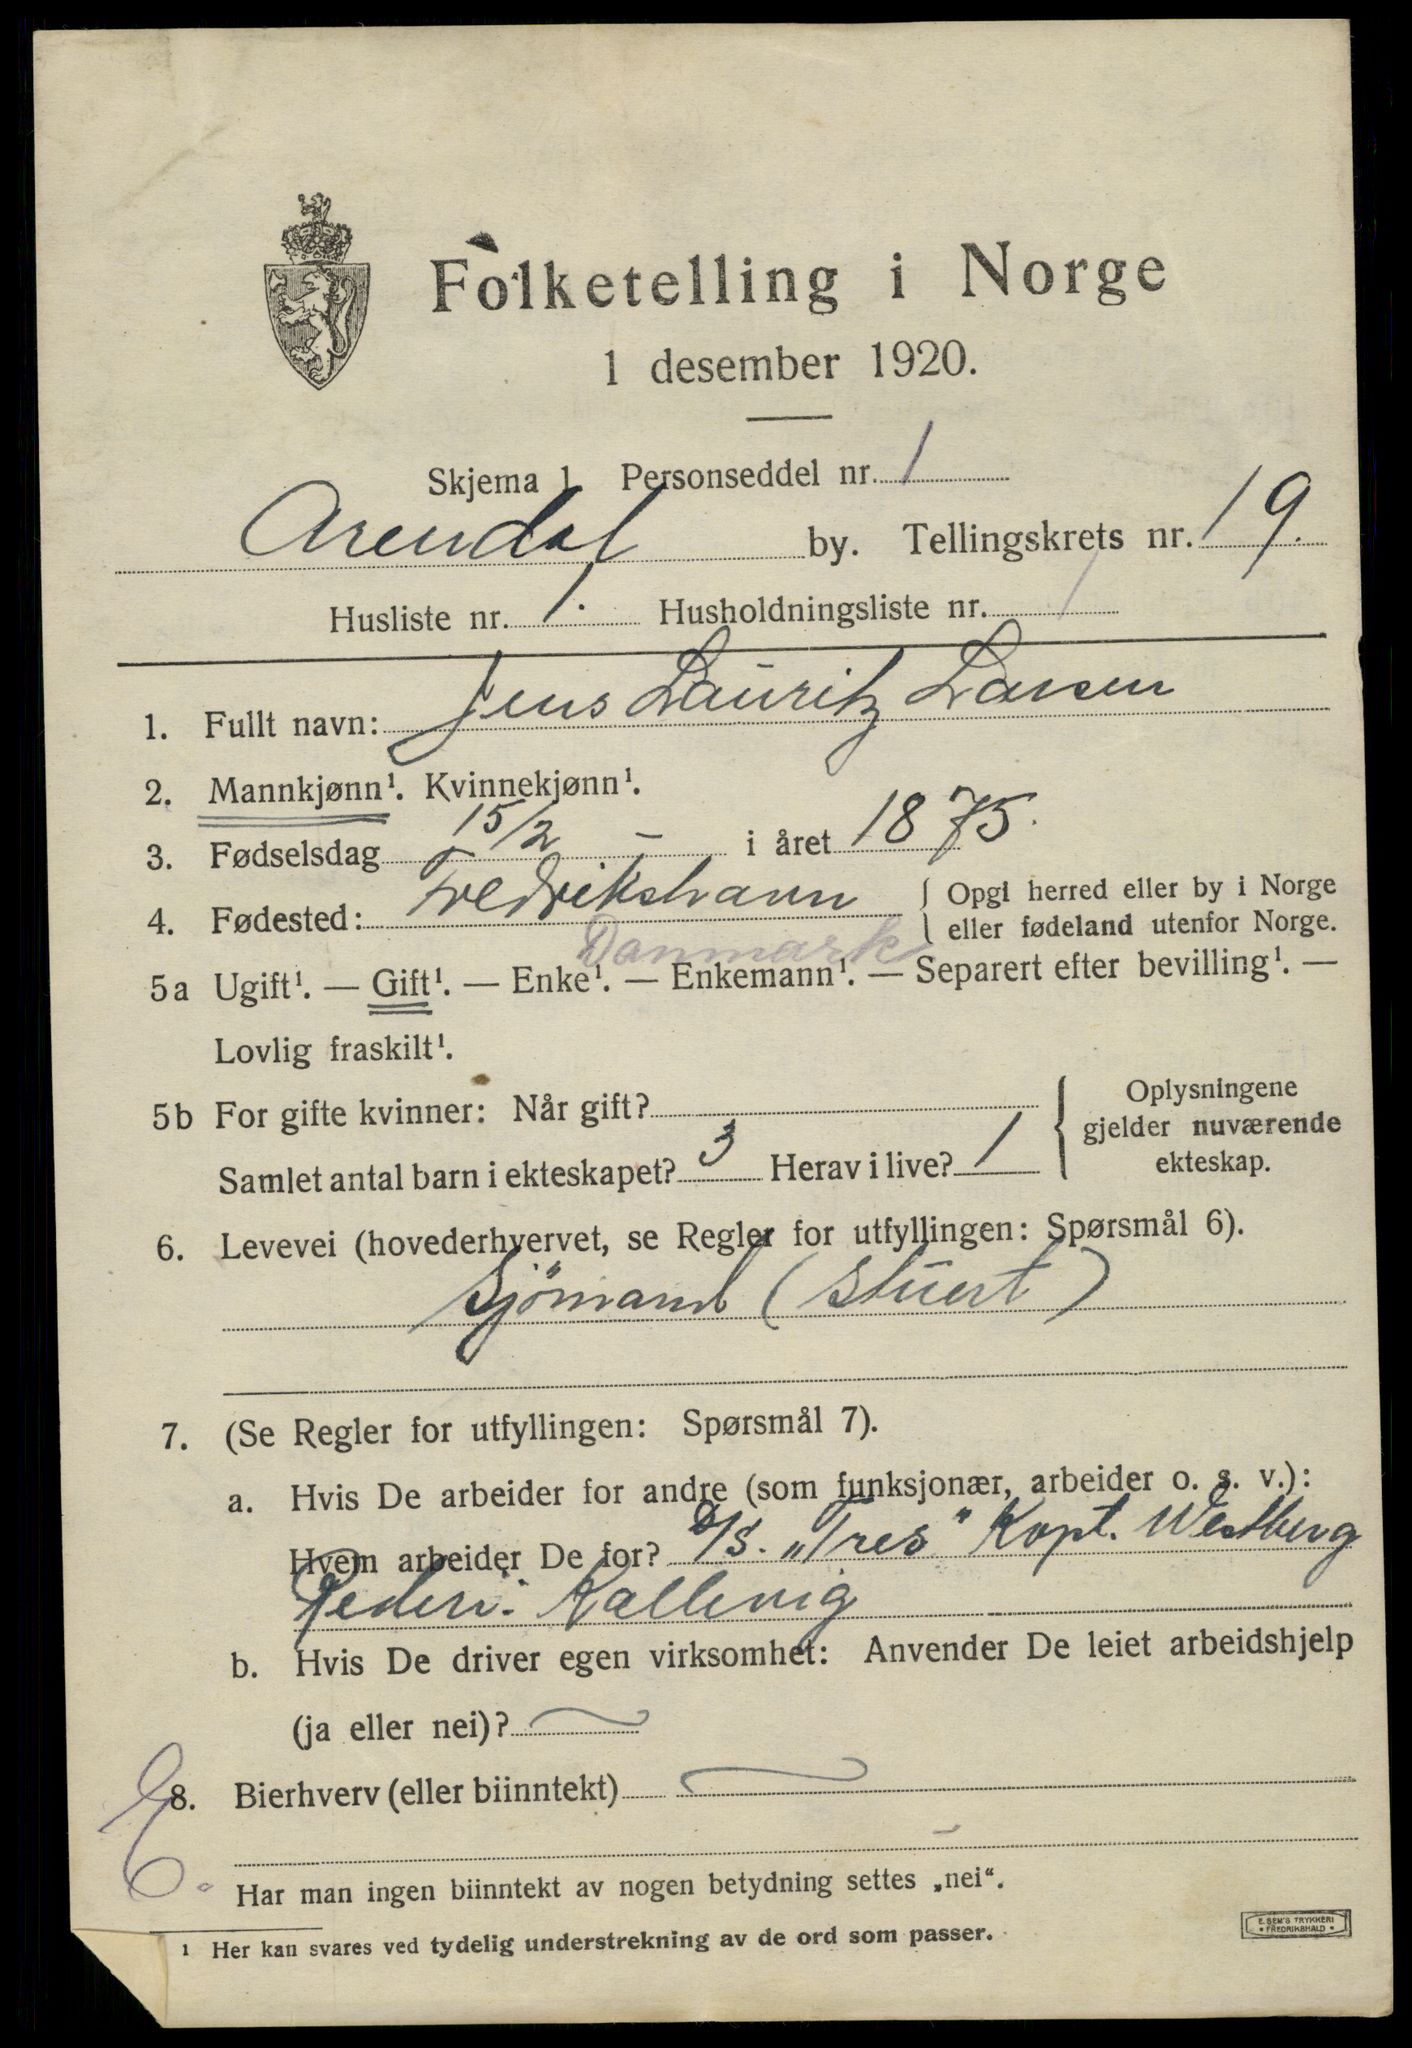 Folketelling i Norge
1 desember 1920.
Skjema 1 Personseddel nr. 1
Arendal by. Tellingskrets nr. 19.
Husliste nr. 1. Husholdningsliste nr. 1
1. Fullt navn: Jens Lauritz Larsen
2. Mannkjønn¹. Kvinnekjønn¹.
3. Fødselsdag 15/2 — i året 1875.
4. Fødested: Fredrikshavn { Opgi herred eller by i Norge
eller fødeland utenfor Norge.
Danmark
5a Ugift¹. — Gift¹. — Enke¹. — Enkemann¹. — Separert efter bevilling¹. —
Lovlig fraskilt¹.
5b For gifte kvinner: Når gift?
Samlet antal barn i ekteskapet? 3 Herav i live? 1
{ Oplysningene
gjelder nuværende
ekteskap.
6. Levevei (hovederhvervet, se Regler for utfyllingen: Spørsmål 6).
Sjömand (Stuert)
7. (Se Regler for utfyllingen: Spørsmål 7).
a. Hvis De arbeider for andre (som funksjonær, arbeider o. s. v.):
Hvem arbeider De for? D/S. „Tres" Kapt. Westberg
Rederi: Kallevig
b. Hvis De driver egen virksomhet: Anvender De leiet arbeidshjelp
(ja eller nei)? —
8. Bierhverv (eller biinntekt) —
Har man ingen biinntekt av nogen betydning settes „nei“.
¹ Her kan svares ved tydelig understrekning av de ord som passer.
E. SEM'S TRYKKERI
• FREDRIKSHALD •